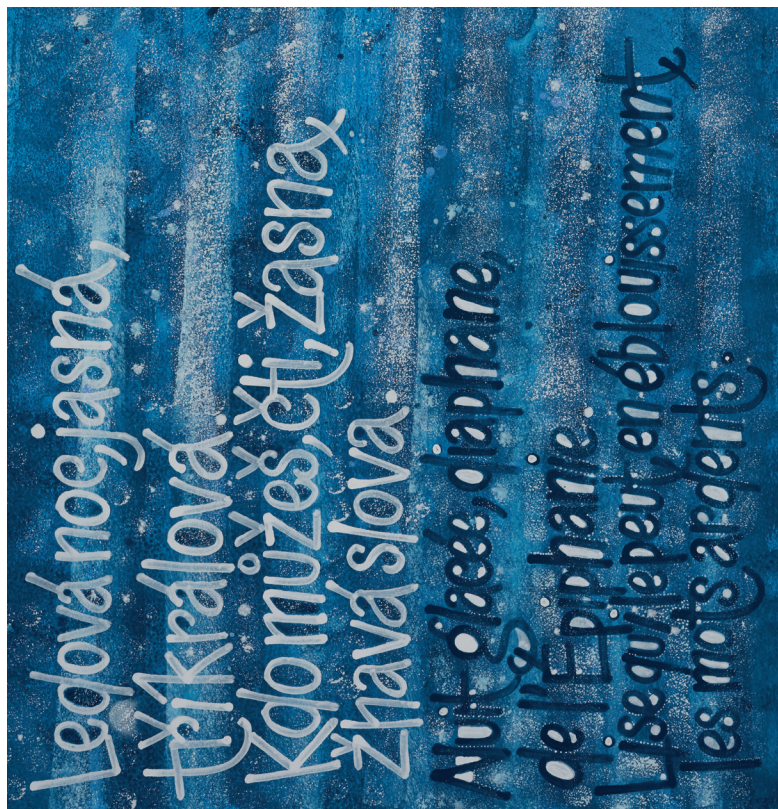 Ledová noc jasná,
tříkrálová
Kdo můžeš, čti, žasna,
žhavá slova
Nuit glacée, diaphane,
de l'Epiphanie
Lise qui le peut en éblouissement
les mots ardents.